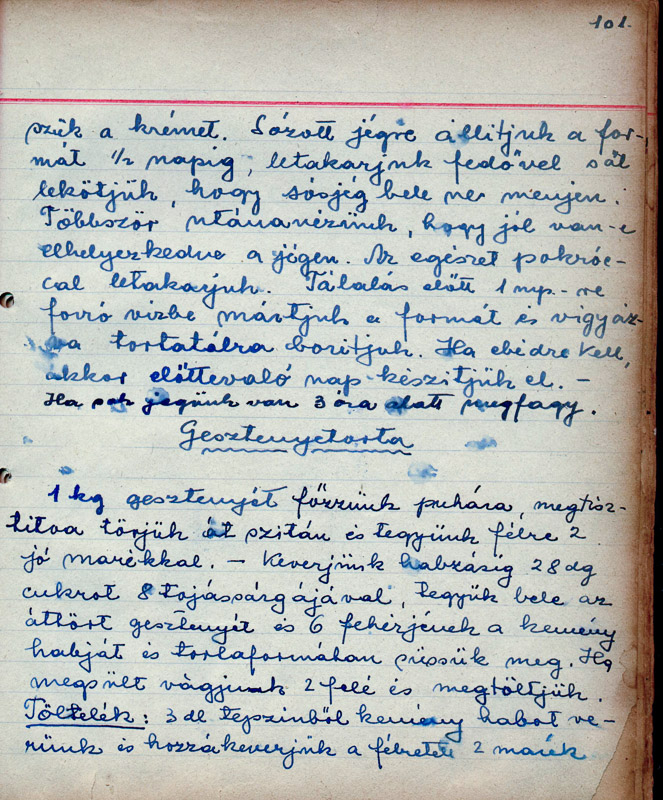 101.
szük a krémet. Sózott jégre állitjuk a for-
mát 1/2 napig, letakarjuk fedővel s át
lekötjük, hogy sósjég bele ne menjen.
Többször utánanézünk, hogy jól van-e
elhelyezkedve a jégen. Az egészet pokróc-
cal letakarjuk. Tálalás előtt 1 mp.-re
forró vizbe mártjuk a formát és vigyáz-
va tortatálra boritjuk. Ha ebédre kell,
akkor előttevaló nap készitjük el. -
Ha sok jegünk van 3 óra alatt megfagy.
Gesztenyetorta
1 kg gesztenyét főzzünk puhára, megtisz-
titva törjük át szitán és tegyünk félre 2
jó marékkal. - Keverjünk habzásig 28 dg
cukrot 8 tojássárgájával, tegyük bele az
áttört gesztenyét és 6 fehérjének a kemény
habját és tortaformában süssük meg. Ha
megsült vágjuk 2 felé és megtöltjük.
Töltelék: 3 dl tejszinből kemény habot ve-
rünk és hozzákeverjük a félretett 2 marék